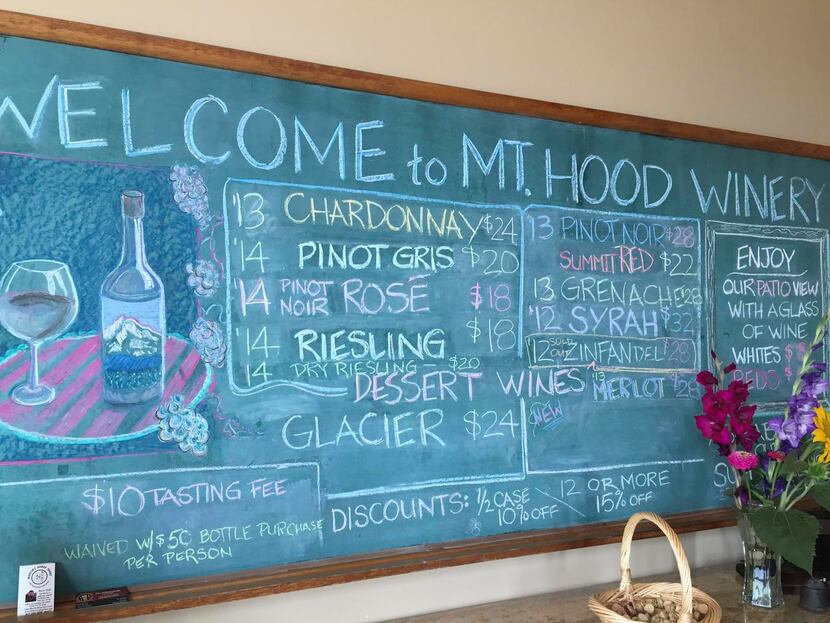 WELCOME to MT. HOOD WINERY
'13 CHARDONNAY $24
'14 PINOT GRIS $20
'14 PINOT NOIR ROSÉ $18
'14 RIESLING $18
14 DRY RIESLING - $20
13 PINOT NOIR $28
SUMMIT RED $22
13 GRENACHE $28
'12 SYRAH $32
'12 SOLD OUT ZINFANDEL $28
'13 MERLOT $28
NEW
DESSERT WINES
GLACIER $24
ENJOY
OUR PATIO VIEW
WITH A GLASS
OF WINE
WHITES
REDS
$10 TASTING FEE
WAIVED W/$50 BOTTLE PURCHASE
PER PERSON
DISCOUNTS: 1/2 CASE 10% OFF
12 OR MORE 15% OFF